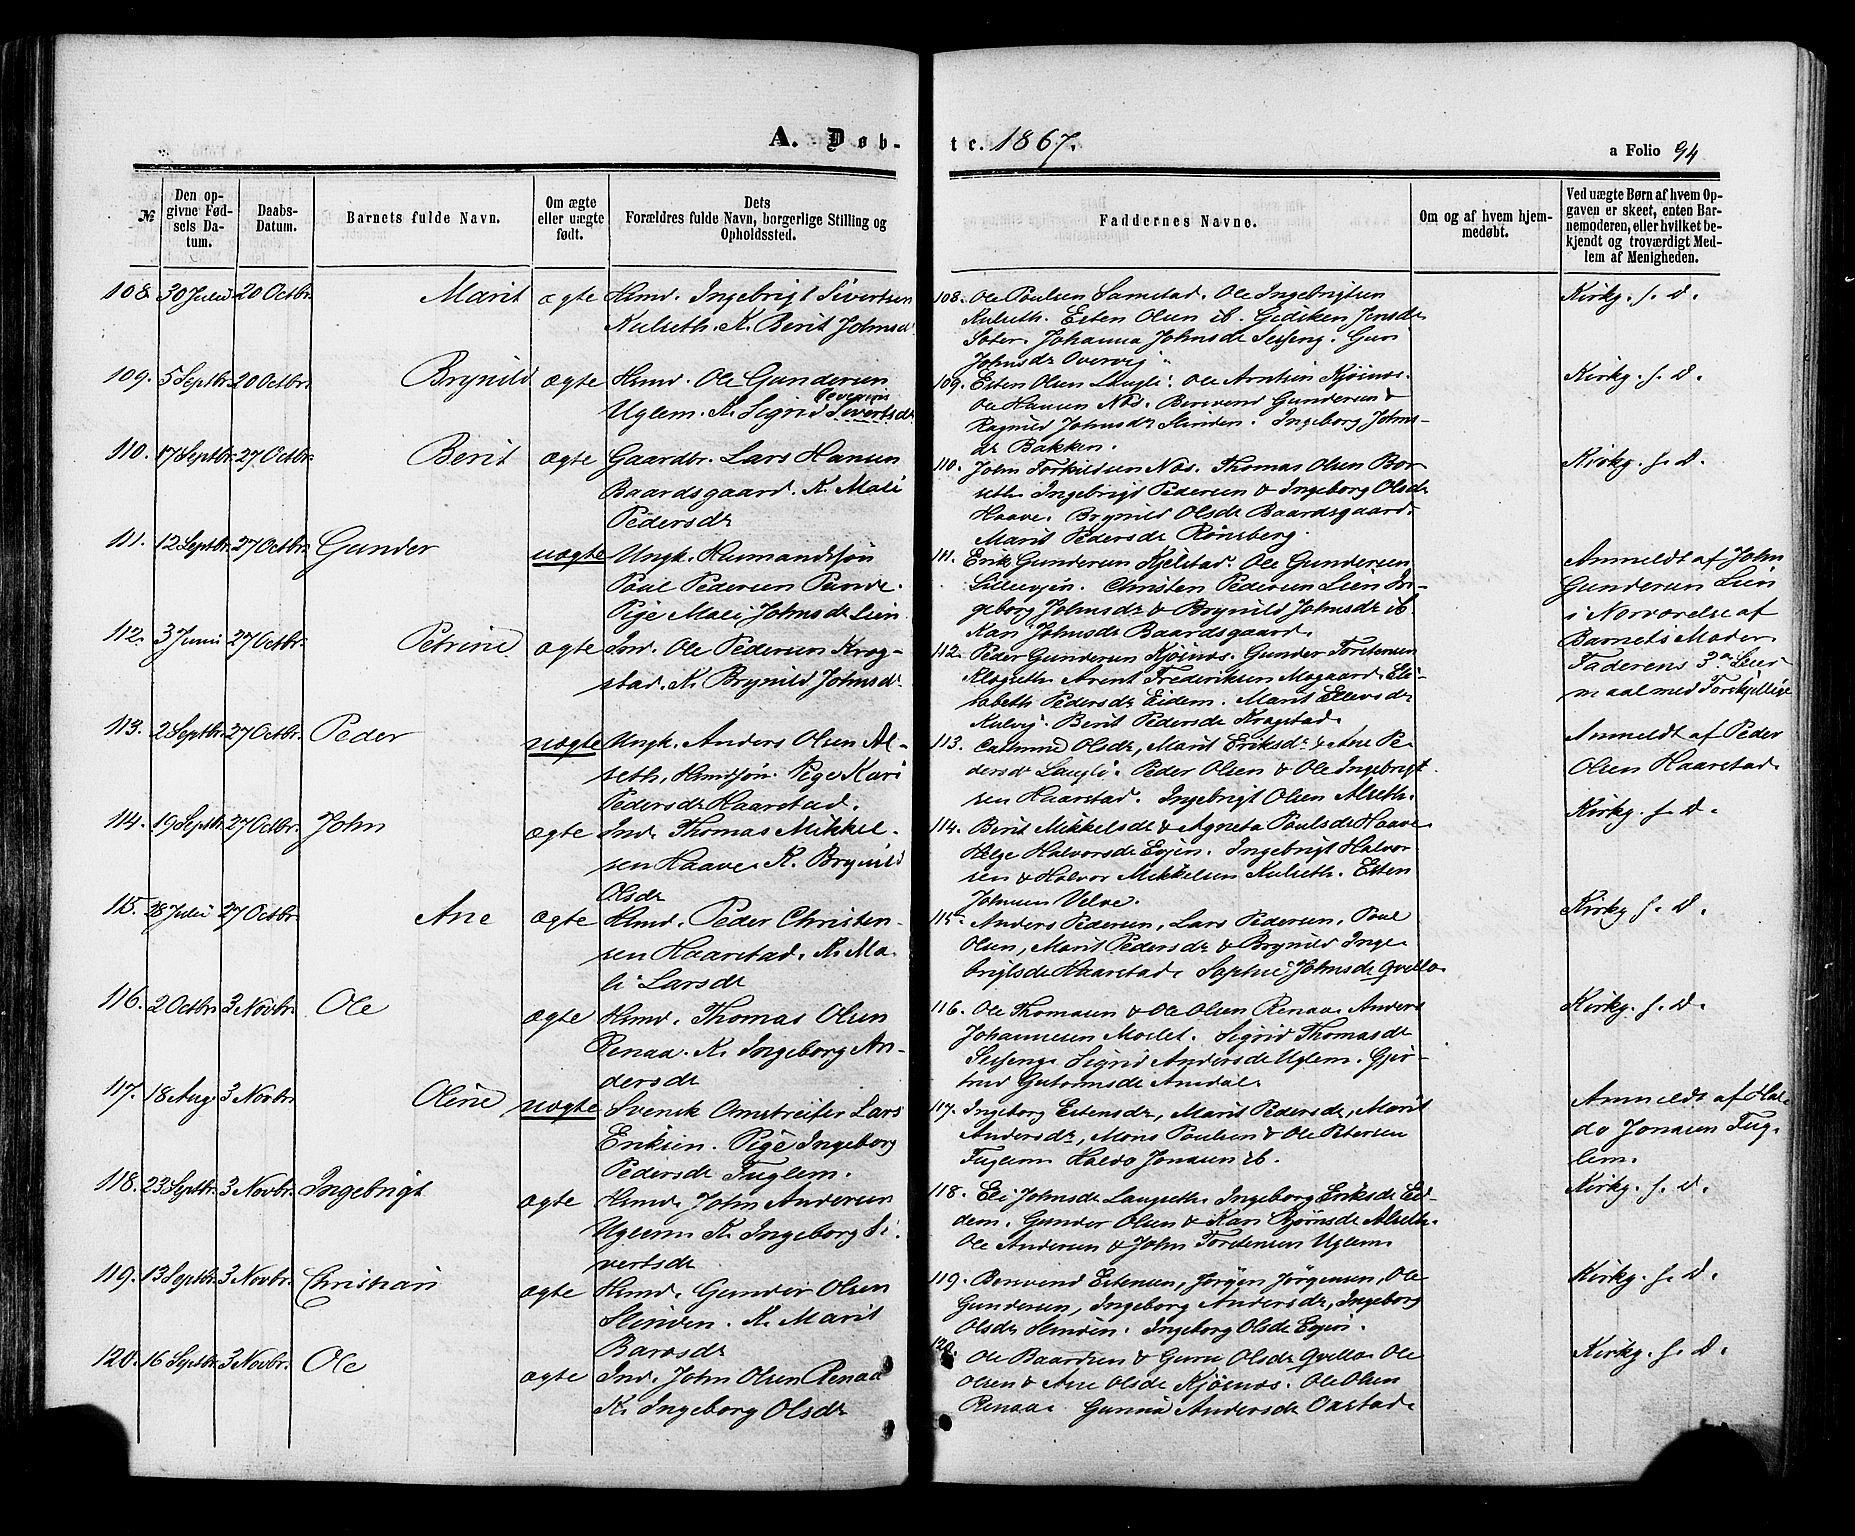 A. Døb-
te. 1867.
a Folio 94
№
Den op-
givne Fød-
sels Da-
tum.
Daabs-
Datum.
Barnets fulde Navn.
Om ægte
eller uægte
født.
Dets
Forældres fulde Navn, borgerlige Stilling og
Opholdssted.
Faddernes Navne.
Om og af hvem hjem-
medøbt.
Ved uægte Børn af hvem Op-
gaven er skeet, enten Bar-
nemoderen, eller hvilket be-
kjendt og troværdigt Med-
lem af Menigheden.
108. 30 Juli 20 Octbr. Marit ægte Hmd. Ingebrigt Sivertsen
Kulseth. K. Berit Johnsdr
108. Ole Poulsen Samstad. Ole Ingebrigtsen
Kulseth. Esten Olsen ib. Gediken Jensdr
Johanna Johnsdr Selseng. Guri
Johnsdr Overvig
Kirkg. s. D.
109. 5 Septbr. 20 Octbr. Brynild ægte Hmd. Ole Gundersen
Uglem. K. Sigrid Sivertsdr
109. Esten Olsen Laugli. Ole Arntsen Kjøsnæs.
Ole Hansen Næs. Beresvend Gundersen &
Ragnild Johnsdr Slinden. Ingeborg Johns-
dr Bakken.
Kirkg. s. D.
110. 17 Septbr. 27 Octbr. Berit ægte Gaardbr. Lars Hansen
Baardsgaard. K. Mali
Pedersdr
110. John Torkildsen Næs. Thomas Olsen Bor-
seth. Ingebrigt Pedersen & Ingeborg Olsdr
Haave. Brynild Olsdr Baardsgaard.
Marit Pedersdr Rønsberg.
Kirkg. s. D.
111. 12 Septbr. 27 Octbr. Gunder uægte Ungk. Husmandssøn
Poul Pedersen
Pige Mali Johnsdr Lien
111. Erik Gundersen Kjelstad. Ole Gundersen
Lilleevjen. Christen Pedersen Lien In-
geborg Johnsdr & Brynild Johnsdr ib.
Kari Johnsdr Baardsgaard.
Anmeldt af John
Gundersen Lien
i Nærværelse af
Barnets Moder.
Faderens 3die Leier-
maal med Forskjellige
112. 3 Juni 27 Octbr. Petrine ægte Ind. Ole Pedersen Krog-
stad. K. Brynild Johnsdr.
112. Peder Gundersen Kjøsnæs. Gunder Torstensen
Klegseth. Arent Frederiksen Mogaard. Eli-
sabeth Pedersdr Eidem. Marit Ellevsdr
Kulvig. Berit Pedersdr Krogstad.
113. 2 Septbr. 27 Octbr. Peder uægte Ungk. Anders Olsen Al-
seth, Hmdsøn. Pige Kari
Pedersdr Haarstad.
113. Olsdr, Marit Eriksdr & Ane Pe-
dersdr Laugli. Peder Olsen & Ole Ingebrigt-
sen Haarstad. Ingebrigt Olsen Alseth.
Anmeldt af Peder
Olsen Haarstad.
114. 19 Septbr. 27 Octbr. John ægte Ind. Thomas Mikkel-
sen Haave. K. Brynild
Olsdr
114. Berit Mikkelsdr & Agneta Poulsdr Haave.
Helge Halvorsdr Evjen. Ingebrigt Halvor-
sen & Halvor Mikkelsen Kulseth. Esten
Johnsen Velve.
Kirkg. s. D.
115. 28 Juli 27 Octbr. Ane ægte Hmd. Peder Christen-
sen Haarstad. K. Ma-
li Larsdr
115. Anders Pedersen, Lars Pedersen, Poul
Olsen, Marit Pedersdr & Brynild Inge-
brigtsdr Haarstad. Sophie Johnsdr Qvello
Kirkg. s. D.
116. 2 Octbr. 3 Novbr. Ole ægte Hmd. Thomas Olsen
Renaa. K. Ingeborg An-
dersdr
116. Ole Thomasen & Ole Olsen Renaa. Anders
Johannesen Moslet. Sigrid Thomasdr
Selseng. Sigrid Andersdr Uglem. Gjer-
trud Gutormsdr Amdal.
Kirkg. s. D.
117. 18 Aug. 3 Novbr. Oline uægte Svensk Omstreifer Lars
Eriksen. Pige Ingeborg
Pedersdr Fuglem.
117. Ingeborg Estensdr, Marit Pedersdr, Marit
Andersdr, Mons Poulsen & Ole Petersen
Fuglem. Haldo Jonasen ib.
Anmeldt af Hal-
do Jonasen Fug-
lem.
118. 23 Septbr. 3 Novbr. Ingebrigt ægte Hmd. John Andersen
Uglem K. Ingeborg Si-
vertsdr
118. Eli Johnsdr Langseth. Ingeborg Eriksdr Ei-
dem. Gunder Olsen & Kari Bjørnsdr Alseth.
Ole Andersen & John Torstensen Uglem
Kirkg. s. D.
119. 13 Septbr. 3 Novbr. Christian ægte Hmd. Gunder Olsen
Slinden. K. Marit
Barosdr
119. Beresvend Estensen, Jørgen Jørgensen, Ole
Gundersen, Ingeborg Andersdr, Ingeborg
Olsdr Slinden. Ingeborg Olsdr Evjen.
Kirkg. s. D.
120. 16 Septbr. 3 Novbr. Ole ægte Ind. John Olsen Renaa
K. Ingeborg Olsdr
120. Ole Baardsen & Guru Olsdr Qvello. Ole
Olsen & Ane Olsdr Kjøsnæs. Ole Olsen
Renaa. Gunild Andersdr Aastad.
Kirkg. s. D.